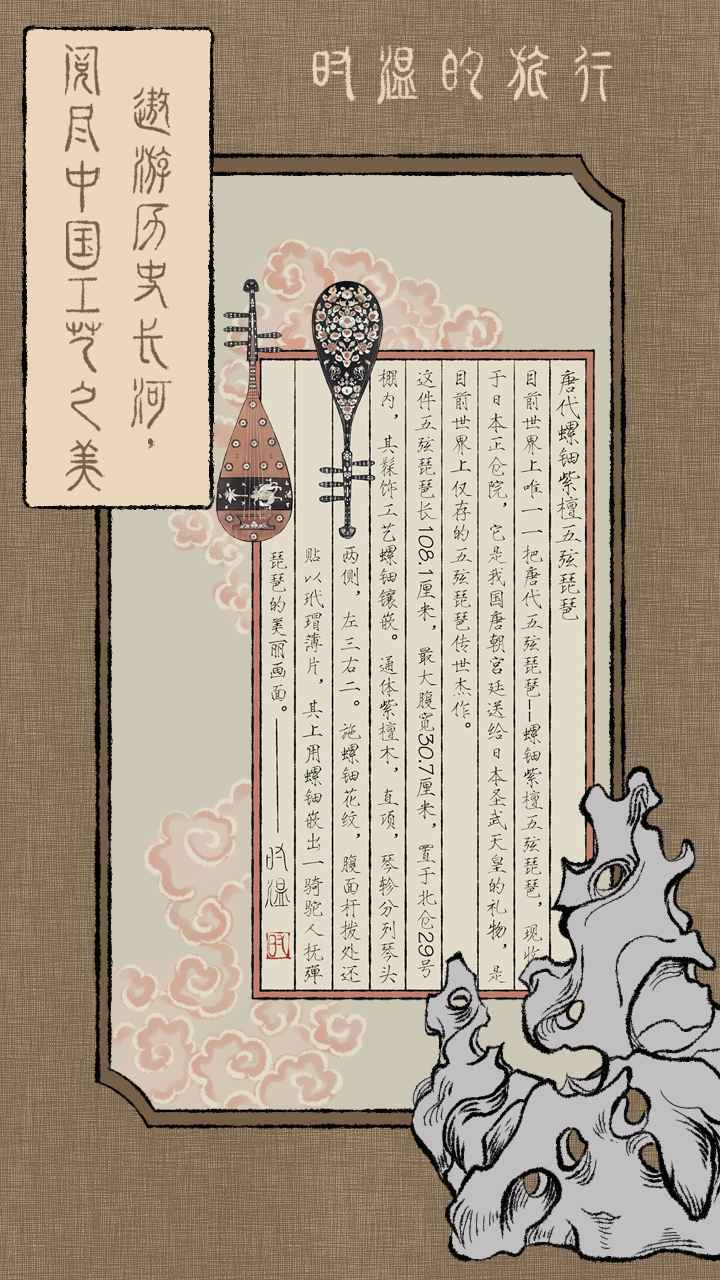 时温的旅行
遨游历史长河，
阅尽中国工艺之美
唐代螺钿紫檀五弦琵琶
目前世界上唯一一把唐代五弦琵琶——螺钿紫檀五弦琵琶，现收
于日本正仓院，它是我国唐朝宫廷送给日本圣武天皇的礼物，是
目前世界上仅存的五弦琵琶传世杰作。
这件五弦琵琶长108.1厘米，最大腹宽30.7厘米，置于北仓29号
棚内，其髹饰工艺螺钿镶嵌。通体紫檀木，直项，琴轸分列琴头
两侧，左三右二。施螺钿花纹，腹面杆拨处还
贴以玳瑁薄片，其上用螺钿嵌出一骑驼人抚弹
琵琶的美丽画面。——时温
时